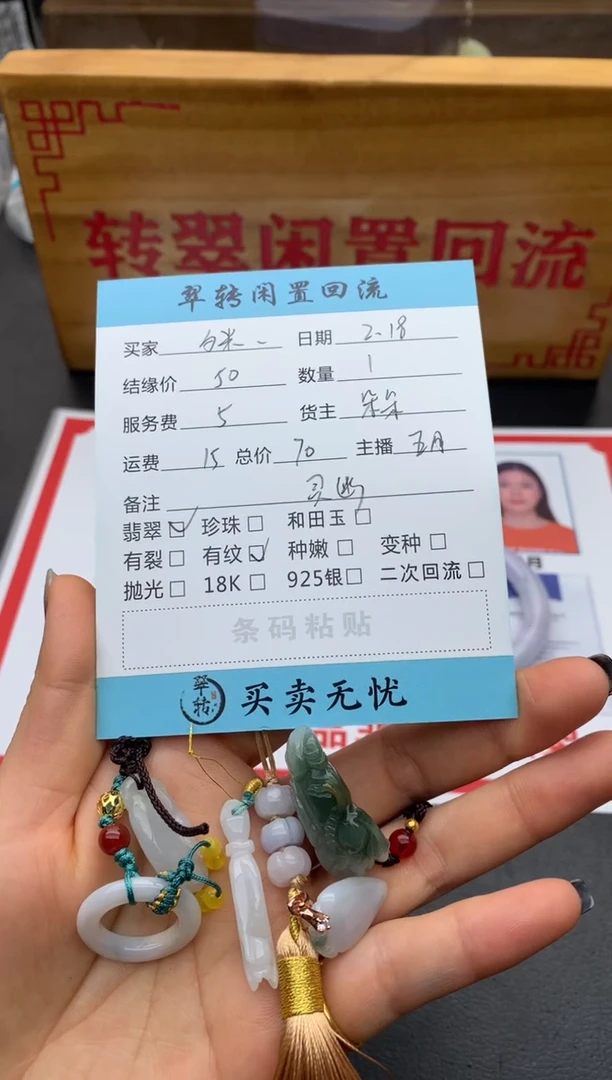 转翠闲置回流
翠转闲置回流
买家 白米一 日期 2.18
结缘价 50 数量 1
服务费 5 货主 朵朵
运费 15 总价 70 主播 五月
备注
翡翠 珍珠 和田玉
有裂 有纹 种嫩 变种
抛光 18K 925银 二次回流
条码粘贴
翠转 买卖无忧
月